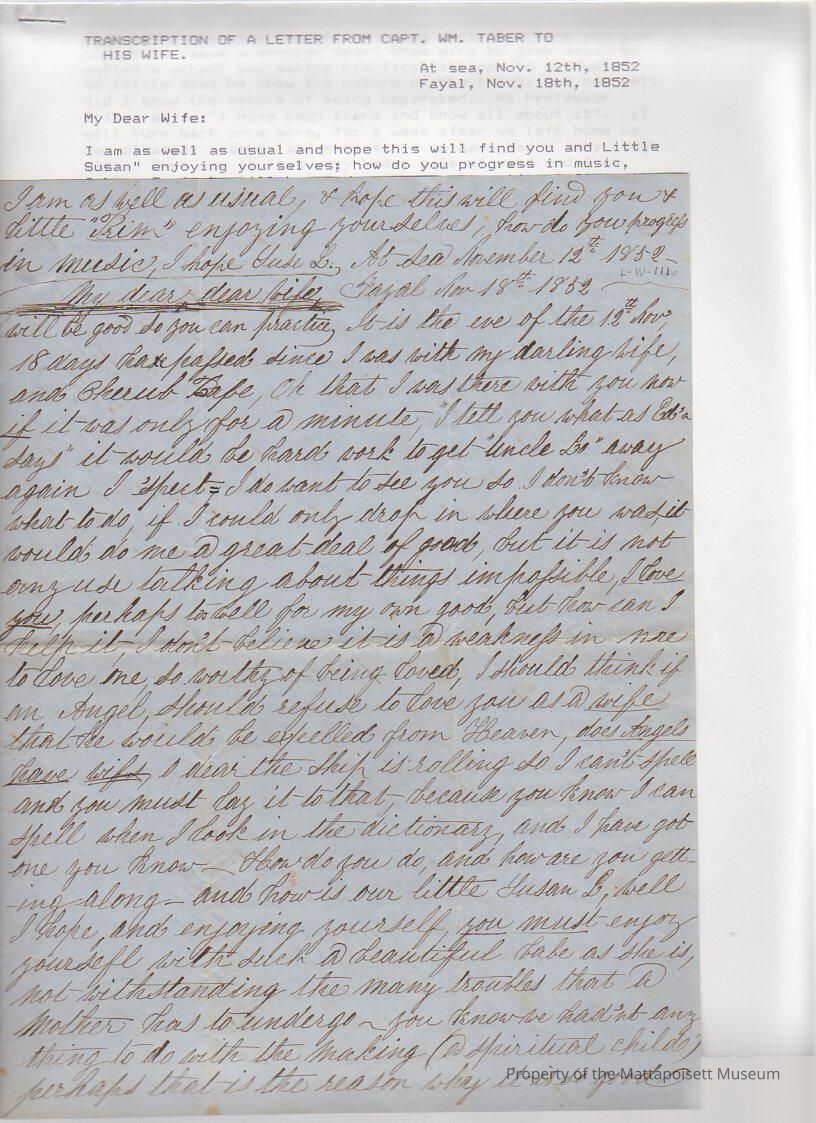 TRANSCRIPTION OF A LETTER FROM CAPT. WM. TABER TO
HIS WIFE.
At sea, Nov. 12th, 1852
Fayal, Nov. 18th, 1852
My Dear Wife:
I am as well as usual and hope this will find you and Little
Susan" enjoying yourselves; how do you progress in music,
I am as well as usual, & hope this will find you &
little "Prim" enjoying yourselves, how do you progress
in music, I hope Suse L., At sea November 12th 1852
L-W-1116
My dear, dear Wife, Fayal Nov 18th 1852
will be good so you can practice, It is the eve of the 12th Nov,
18 days has passed since I was with my darling wife,
and Cherub Babe, Oh that I was there with you now
if it was only for a minute, "I tell you what as
says" it would be hard work to get "uncle Bs" away
again I 'spect = I do want to see you so I don't know
what to do, if I could only drop in where you was, it
would do me a great deal of good, but it is not
any use talking about things impossible, I love
you, perhaps to well for my own good, but how can I
help it, I don't believe it is a weakness in me
to love one, so worthy of being loved, I should think if
an Angel, should refuse to love you as a wife
that he would be expelled from Heaven, does Angels
have wifs, O dear the ship is rolling so I can't spell
and you must lay it to that, because you know I can
spell when I look in the dictionary, and I have got
one you know — How do you do, and how are you gett-
-ing along — and how is our little Susan L, well
I hope, and enjoying yourself, you must enjoy
yoursefl with such a beautiful babe as she is,
not withstanding the many troubles that a
Mother has to undergo ~ you know we had'nt any
thing to do with the making (a spiritual child)
perhaps that is the reason why
Property of the Mattapoisett Museum